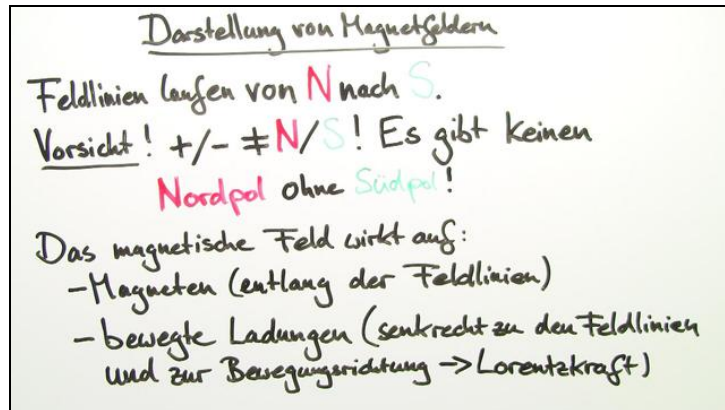 Darstellung von Magnetfeldern
Feldlinien laufen von N nach S.
Vorsicht! +/- ≠ N/S! Es gibt keinen
Nordpol ohne Südpol!
Das magnetische Feld wirkt auf:
- Magneten (entlang der Feldlinien)
- bewegte Ladungen (senkrecht zu den Feldlinien
und zur Bewegungsrichtung -> Lorentzkraft)